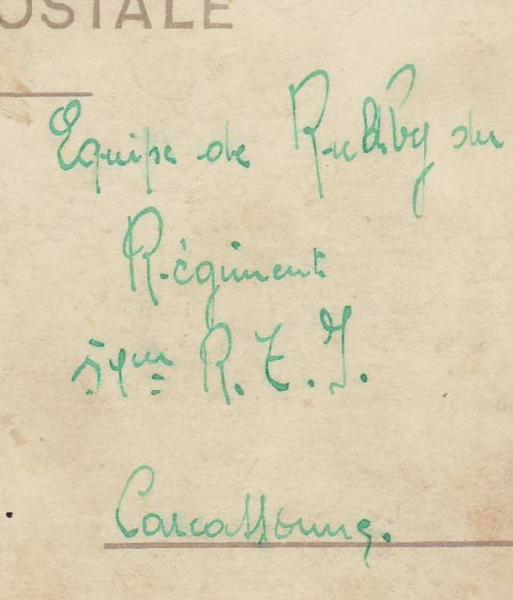 OSTALE
Equipe de Rugby du
Régiment
R. T.
Carcassonne.